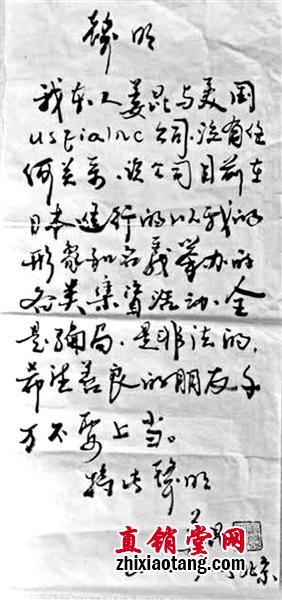 声明
我本人姜昆与美国
usfia inc公司.没有任
何关系.该公司目前在
日本进行的以我的
形象和名义举办的
各类集资活动.全
是骗局.是非法的.
希望善良的朋友千
万不要上当。
特此声明
姜昆
北京
直销堂网
zhixiaotang.com